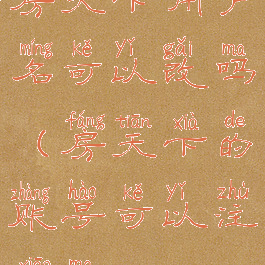 míng kě yǐ gǎi ma
名可以改吗
fáng tiān xià de
(房天下的
zhàng hào kě yǐ zhù
账号可以注